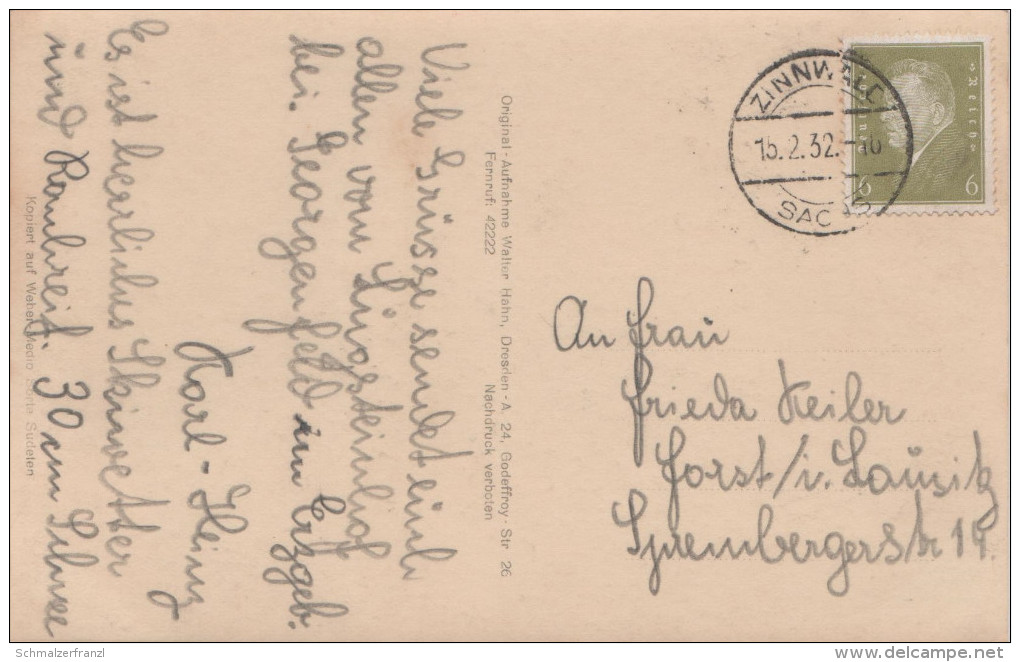 Viele Grüsse sendet euch
allen vom Lugsteinhof
bei Georgenfeld im Erzgeb.
Karl-Heinz
Es ist herrliches Skiwetter
und Rauhreif. 30 cm Schnee
Original-Aufnahme Walter Hahn, Dresden-A. 24, Godeffroy-Str 26
Fernruf: 42222 Nachdruck verboten
Kopiert auf Weber Sudeten
ZINNWALD
15.2.32.
SACHS
Reich
6 6
An Frau
Frieda Keiler
Forst/i. Lausitz
Sprembergerstr 19.
Schmalzerfranzl
delcampe.net